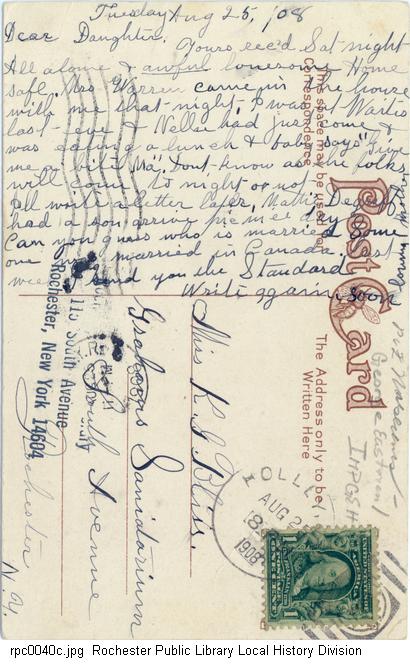 Tuesday Aug 25, '08
Dear Daughter.
Yours rec'd Sat night
All alone & awful lonesome Home
safe. Mrs. Warren came in the house
with me that night. I was at Waities
last eve. Nellie had just come &
was eating a lunch & baby says "Give
me a bite Ma". Don't know as the folks
will come to night or not.
I'll write a letter later. Mattie
had a son arrive picnic day.
Can you guess who is married some
one married in Canada last
week. I send you the Standard.
Write again, soon
This space may be used for
Correspondence
Post Card
The Address only to be
Written Here
Miss K Bliss.
Grahams Sanidarium
South Avenue
Rochester
N. Y.
115 South Avenue
Rochester, New York 14604
George Eastman
HOLLEY,
AUG 2
8
1908
1
1
rpc0040c.jpg Rochester Public Library Local History Division